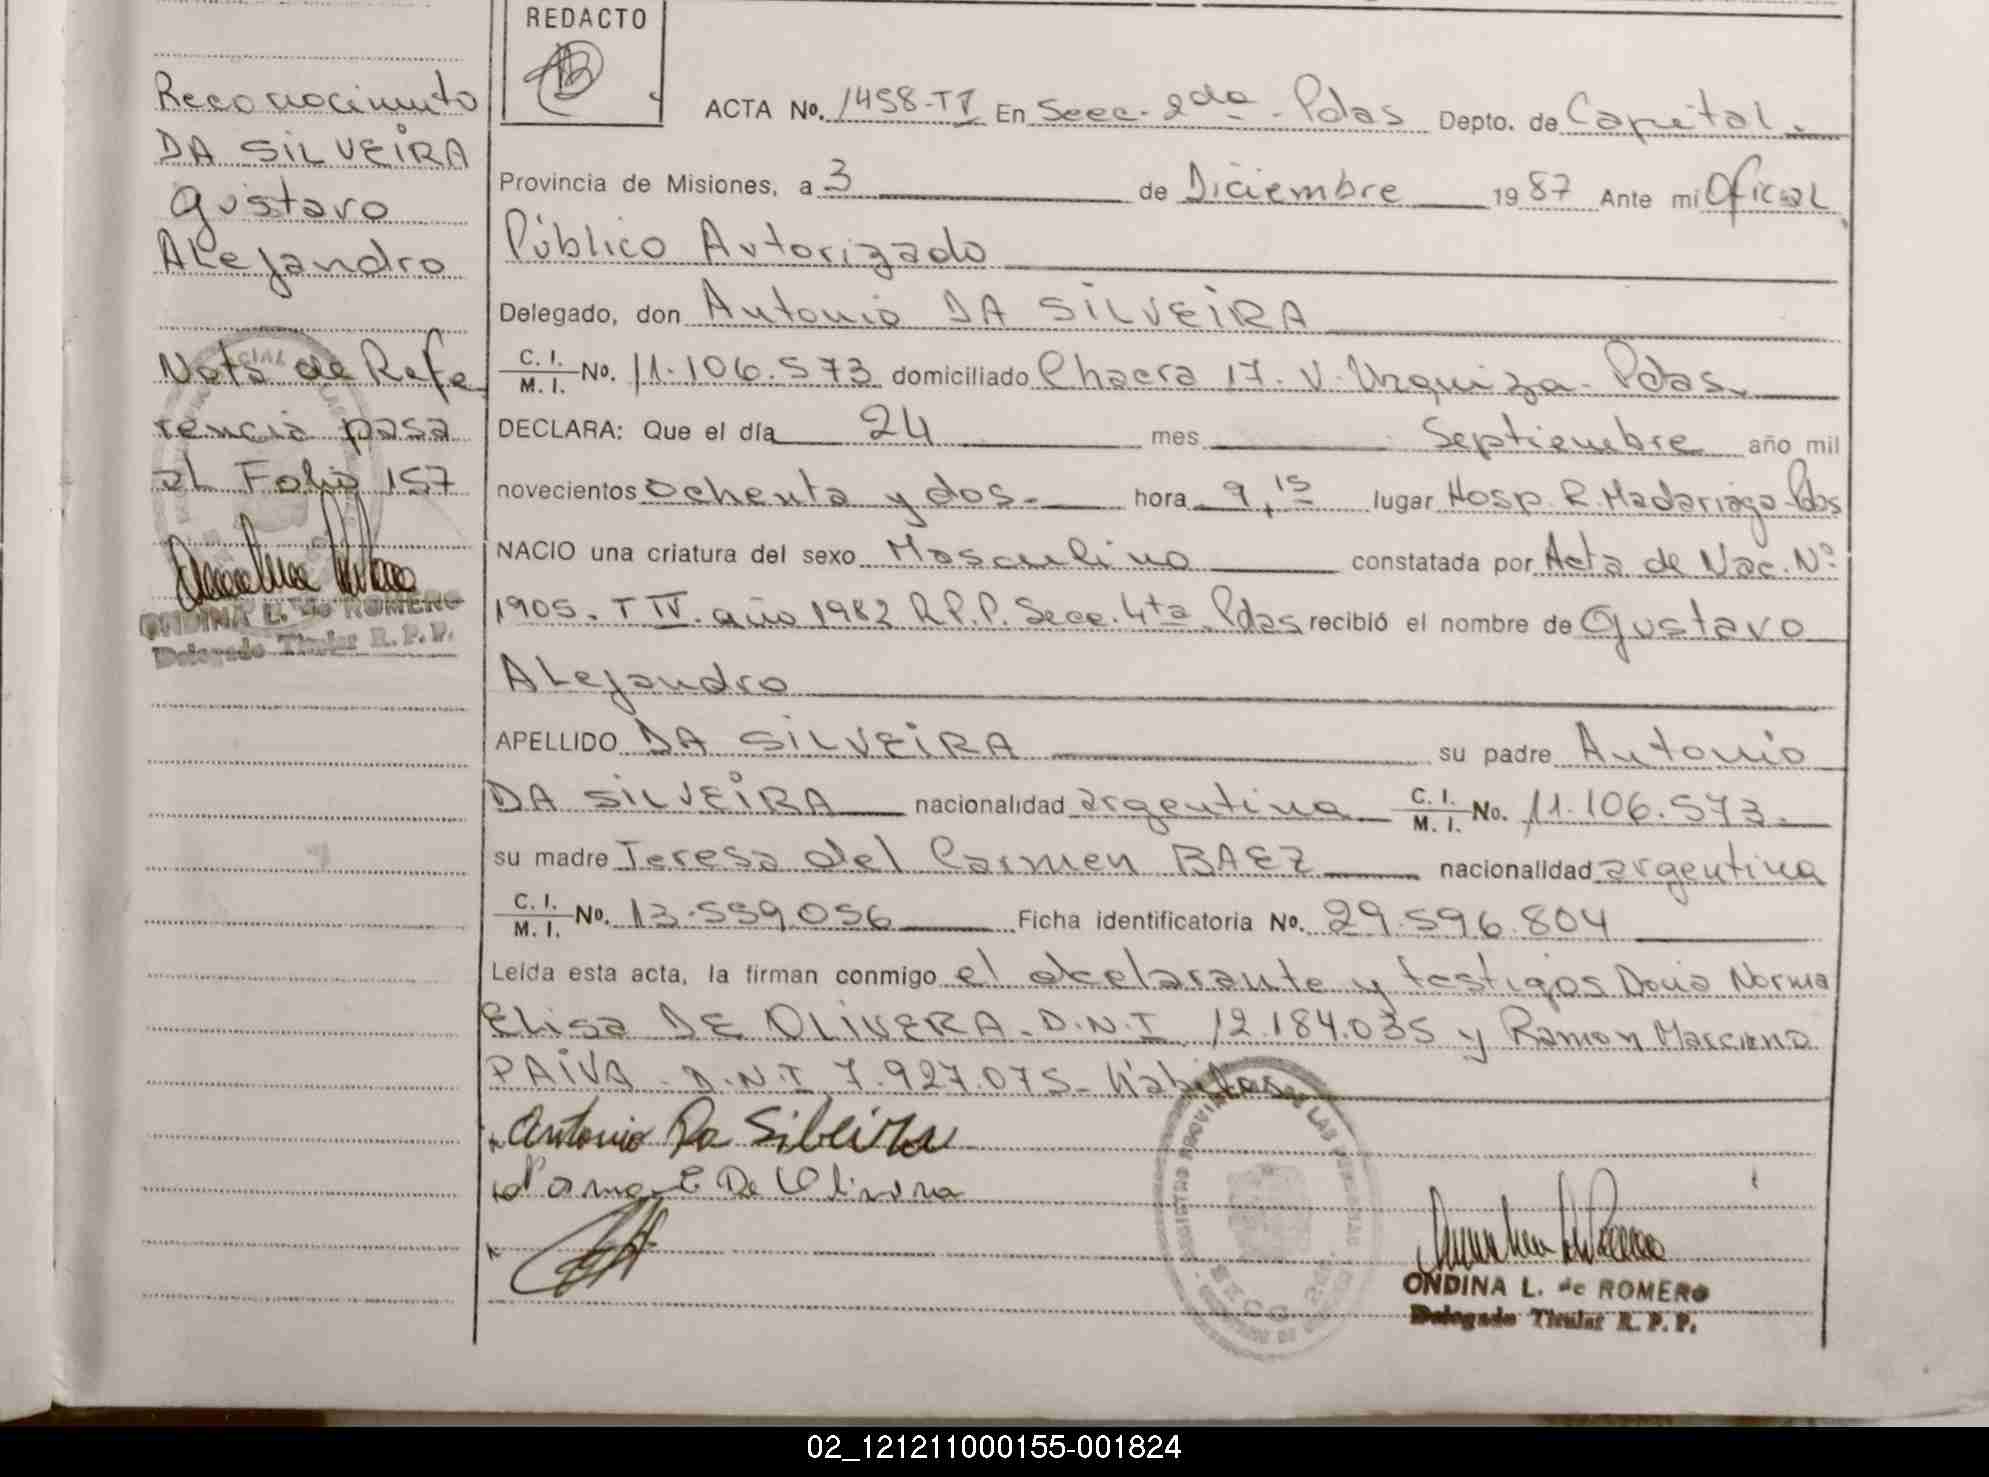 REDACTO
Reconocimiento
DA SILVEIRA
Gustavo
Alejandro
Nota de Refe
rencia pasa
al Folio 157
ONDINA L. de ROMERO
Delegado Titular R. P. P.
ACTA No. 1458-TI En Secc. 2da - Pdas Depto. de Capital.
Provincia de Misiones, a 3 de Diciembre 1987 Ante mi Oficial
Público Autorizado
Delegado, don Antonio DA SILVEIRA
C. I. / M. I. No. 11.106.573 domiciliado Chacra 17. V. Urquiza - Pdas.
DECLARA: Que el día 24 mes Septiembre año mil
novecientos ochenta y dos.- hora 9,15 lugar Hosp. R. Madariaga-Pdas
NACIO una criatura del sexo Masculino constatada por Acta de Nac. Nº
1905. T IV. año 1982 R.P.P. Secc. 4ta Pdas recibió el nombre de Gustavo
Alejandro
APELLIDO DA SILVEIRA su padre Antonio
DA SILVEIRA nacionalidad argentina C. I. / M. I. No. 11.106.573.
su madre Teresa del Carmen BAEZ nacionalidad argentina
C. I. / M. I. No. 13.559.056 Ficha identificatoria No. 29.596.804
Leída esta acta, la firman conmigo el declarante y testigos Doña Norma
Elisa DE OLIVERA - D.N.I 12.184.035 y Ramon Marciano
PAIVA - D.N.I 7.927.075 - Hábiles
Antonio Da Silbeira
E De Olivera
ONDINA L. de ROMERO
Delegado Titular R. P. P.
02_121211000155-001824